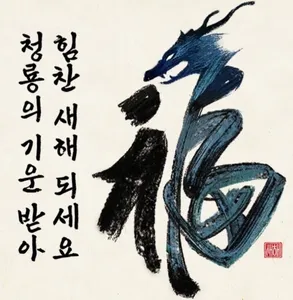 청룡의 기운 받아
힘찬 새해 되세요
福